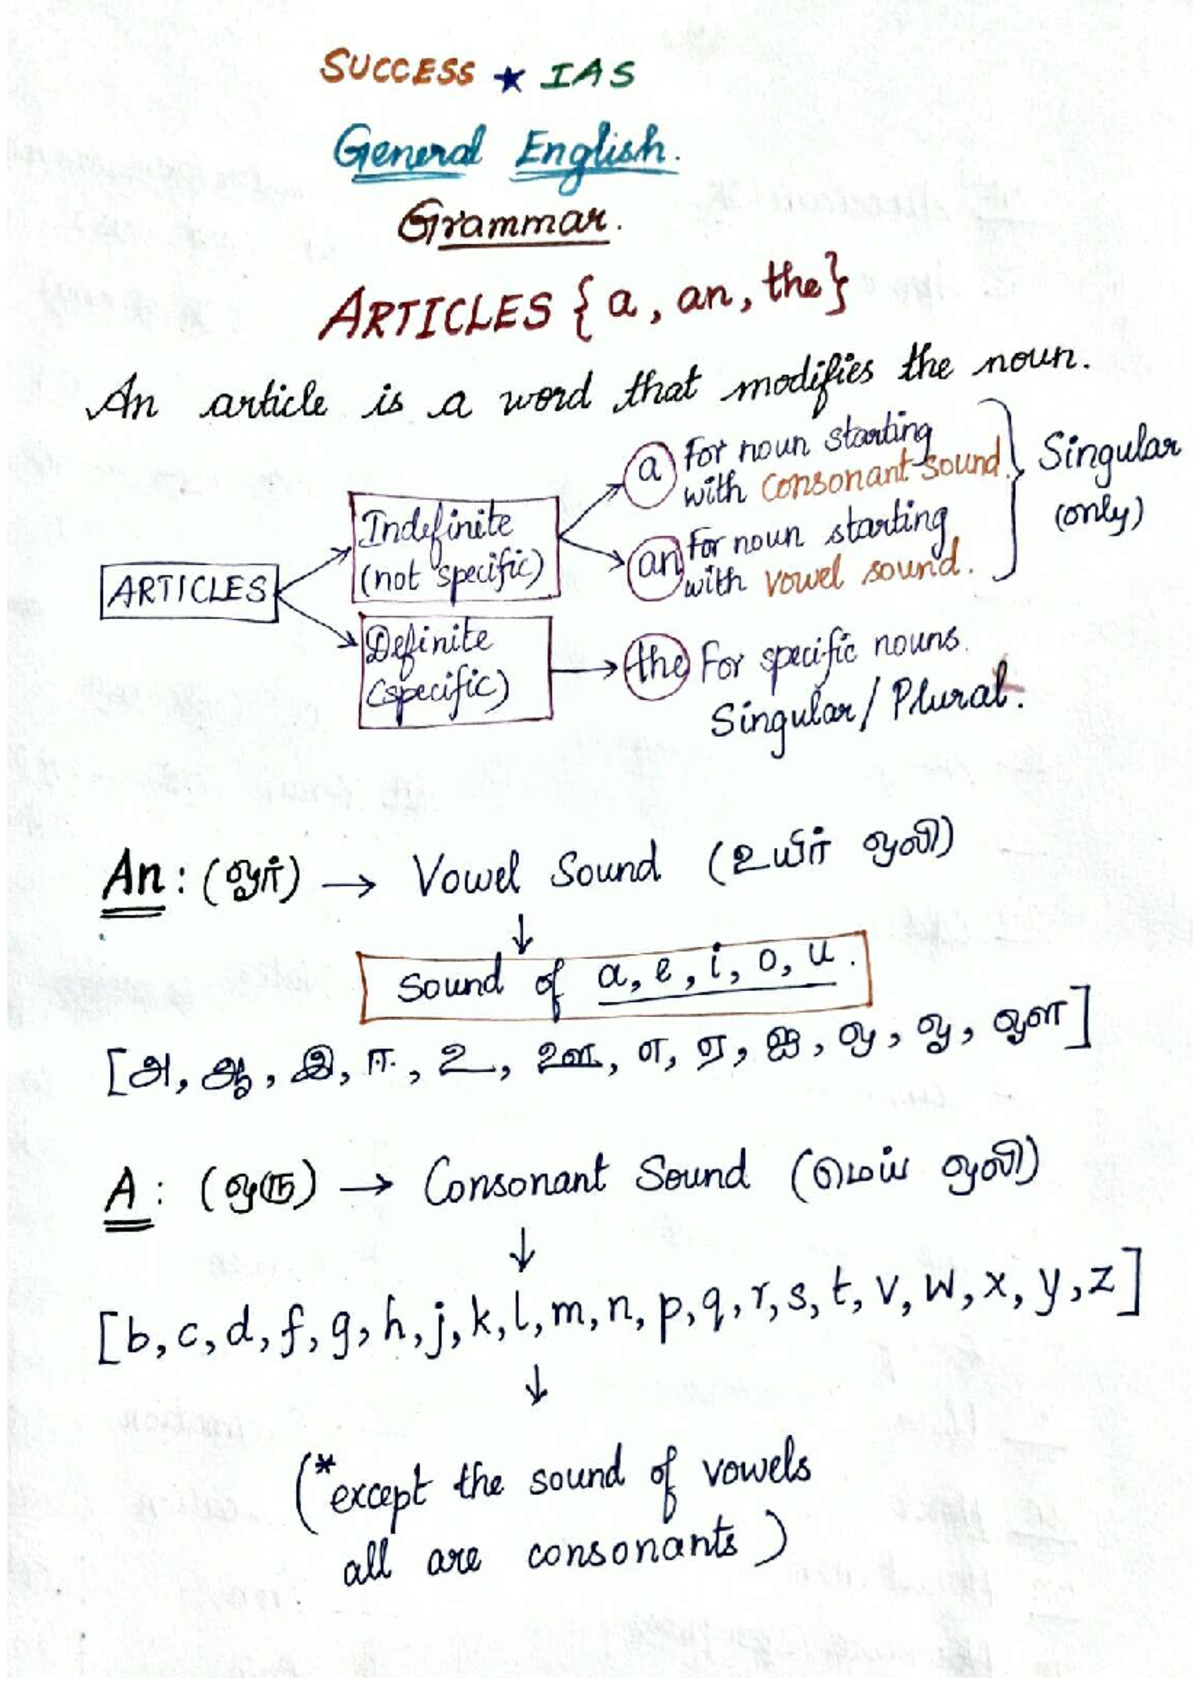 SUCCESS ★ IAS
General English.
Grammar.
ARTICLES {a, an, the}
An article is a word that modifies the noun.
ARTICLES
Indefinite
(not specific)
a For noun starting
with consonant sound.
an For noun starting
with vowel sound.
Singular
(only)
Definite
(specific)
the For specific nouns.
Singular / Plural.
An : (ஓர்) → Vowel Sound (உயிர் ஒலி)
↓
Sound of a, e, i, o, u.
[அ, ஆ, இ, ஈ, உ, ஊ, எ, ஏ, ஐ, ஒ, ஓ, ஔ]
A : (ஒரு) → Consonant Sound (மெய் ஒலி)
↓
[b, c, d, f, g, h, j, k, l, m, n, p, q, r, s, t, v, w, x, y, z]
↓
(*except the sound of vowels
all are consonants)